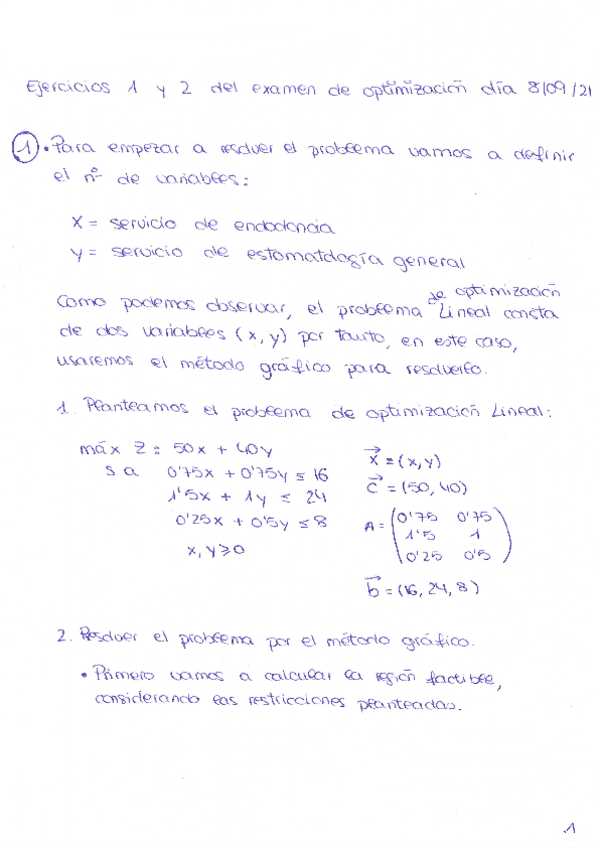 Ejercicios 1 y 2 del examen de optimización día 8/09/21
1 • Para empezar a resolver el problema vamos a definir
el nº de variables:
X = servicio de endodoncia
y = servicio de estomatología general
Como podemos observar, el problema de optimización Lineal consta
de dos variables (x, y) por tanto, en este caso,
usaremos el método gráfico para resolverlo.
1. Planteamos el problema de optimización Lineal:
máx Z = 50x + 40y
s.a 0'75x + 0'75y ≤ 16
1'5x + 1y ≤ 24
0'25x + 0'5y ≤ 8
x, y ≥ 0
x⃗ = (x, y)
c⃗ = (50, 40)
A = (0'75 0'75
1'5 1
0'25 0'5)
b⃗ = (16, 24, 8)
2. Resolver el problema por el método gráfico.
• Primero vamos a calcular la región factible,
considerando las restricciones planteadas.
.1